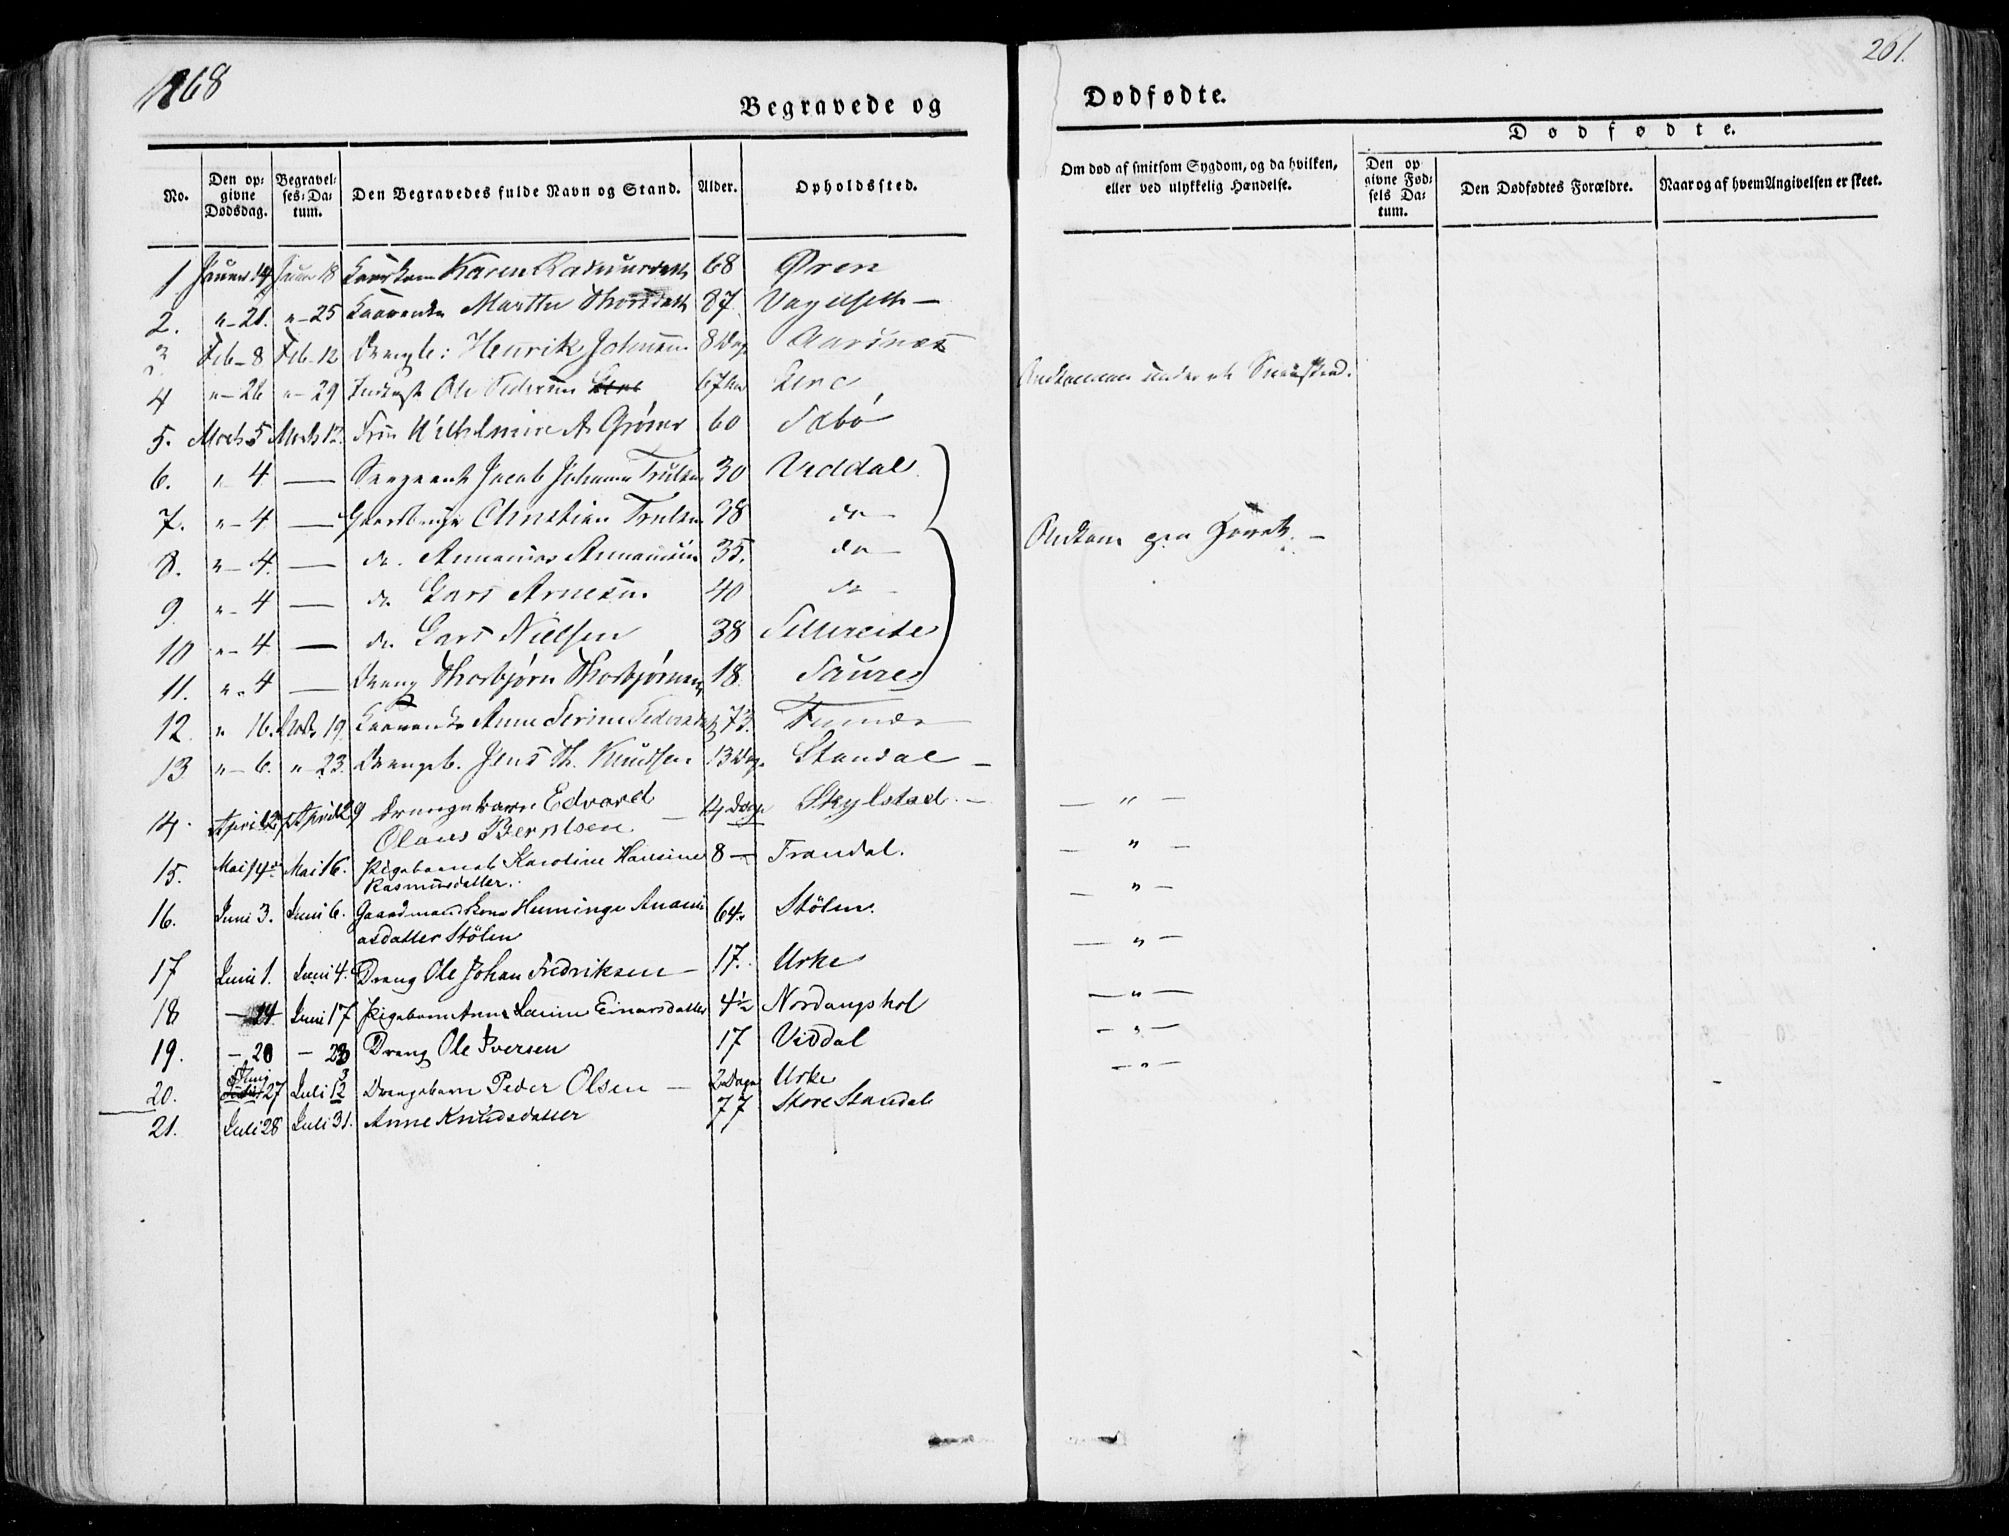 1868
261.
Begravede og
Dødfødte.
Dødfødte.
No.
Den op-
givne
Dødsdag.
Begravel-
ses-Da-
tum.
Den Begravedes fulde Navn og Stand.
Alder.
Opholdssted.
Om død af smitsom Sygdom, og da hvilken,
eller ved ulykkelig Hændelse.
Den op
givne Fød-
sels Da-
tum.
Den Dødfødtes Forældre.
Naar og af hvem Angivelsen er skeet.
1 Januar 14 Januar 18 Karen 68 Øren
2. " - 21. " - 25 Marthe Thorsdatt 87
3. Feb - 8 Feb - 12 Drengb: Henrik Johnsen 8 Dag Aarsnes
4 " - 26 " - 29 Ole Pedersen 67
5. Mrts 5 Mrts 12. Fru Wilhelmine A. Grøner 60 Sæbø
6. " - 4 — Sergeant Jacob Johannes Trulsen 30 Viddal
7. " - 4 — Gaardbruger Christian Trulsen 38 do
8. " - 4. — do. Annanias Annaniasen 35. do
9. " - 4 — do Lars Arnesen 40 do
Omkom paa
10 " - 4 — do Lars Nielsen 38
11. " - 4 — Dreng Thorbjørn Thorbjørnsen 18.
12. " 16. Mrts 19. Anne Serine Pedersdatt 73.
13 " - 6. " - 23. Drengeb. Jens Th. Knudsen 13 Dage Standal
14. April 12 April 29 Drengebarn Edvard 14 Dage Skylstad. — " —
Olaus Berntsen.
15. Mai 14de Mai 16. Pigebarnet Karoline Hansine 8 — Trandal. — " —
Rasmusdatter.
16. Juni 3. Juni 6. Gaardmandskone Heminge Anani 64. Stølen. — " —
asdatter Stølen
17 Juni 1. Juni 4. Dreng Ole Johan Fredriksen — 17. Urke — " —
18 — 14. Juni 17 Pigebarn Anne Laurine Einarsdatter 4½ Nordangshol — " —
19. — 20 — 23 Dreng Ole Iversen 17 Viddal — " —
20. 27 Juli 12 Drengebarn Peder Olsen — 2 Dage Urke — " —
21. Juli 28 Juli 31. Anne Knudsdatter 77 Store Standal